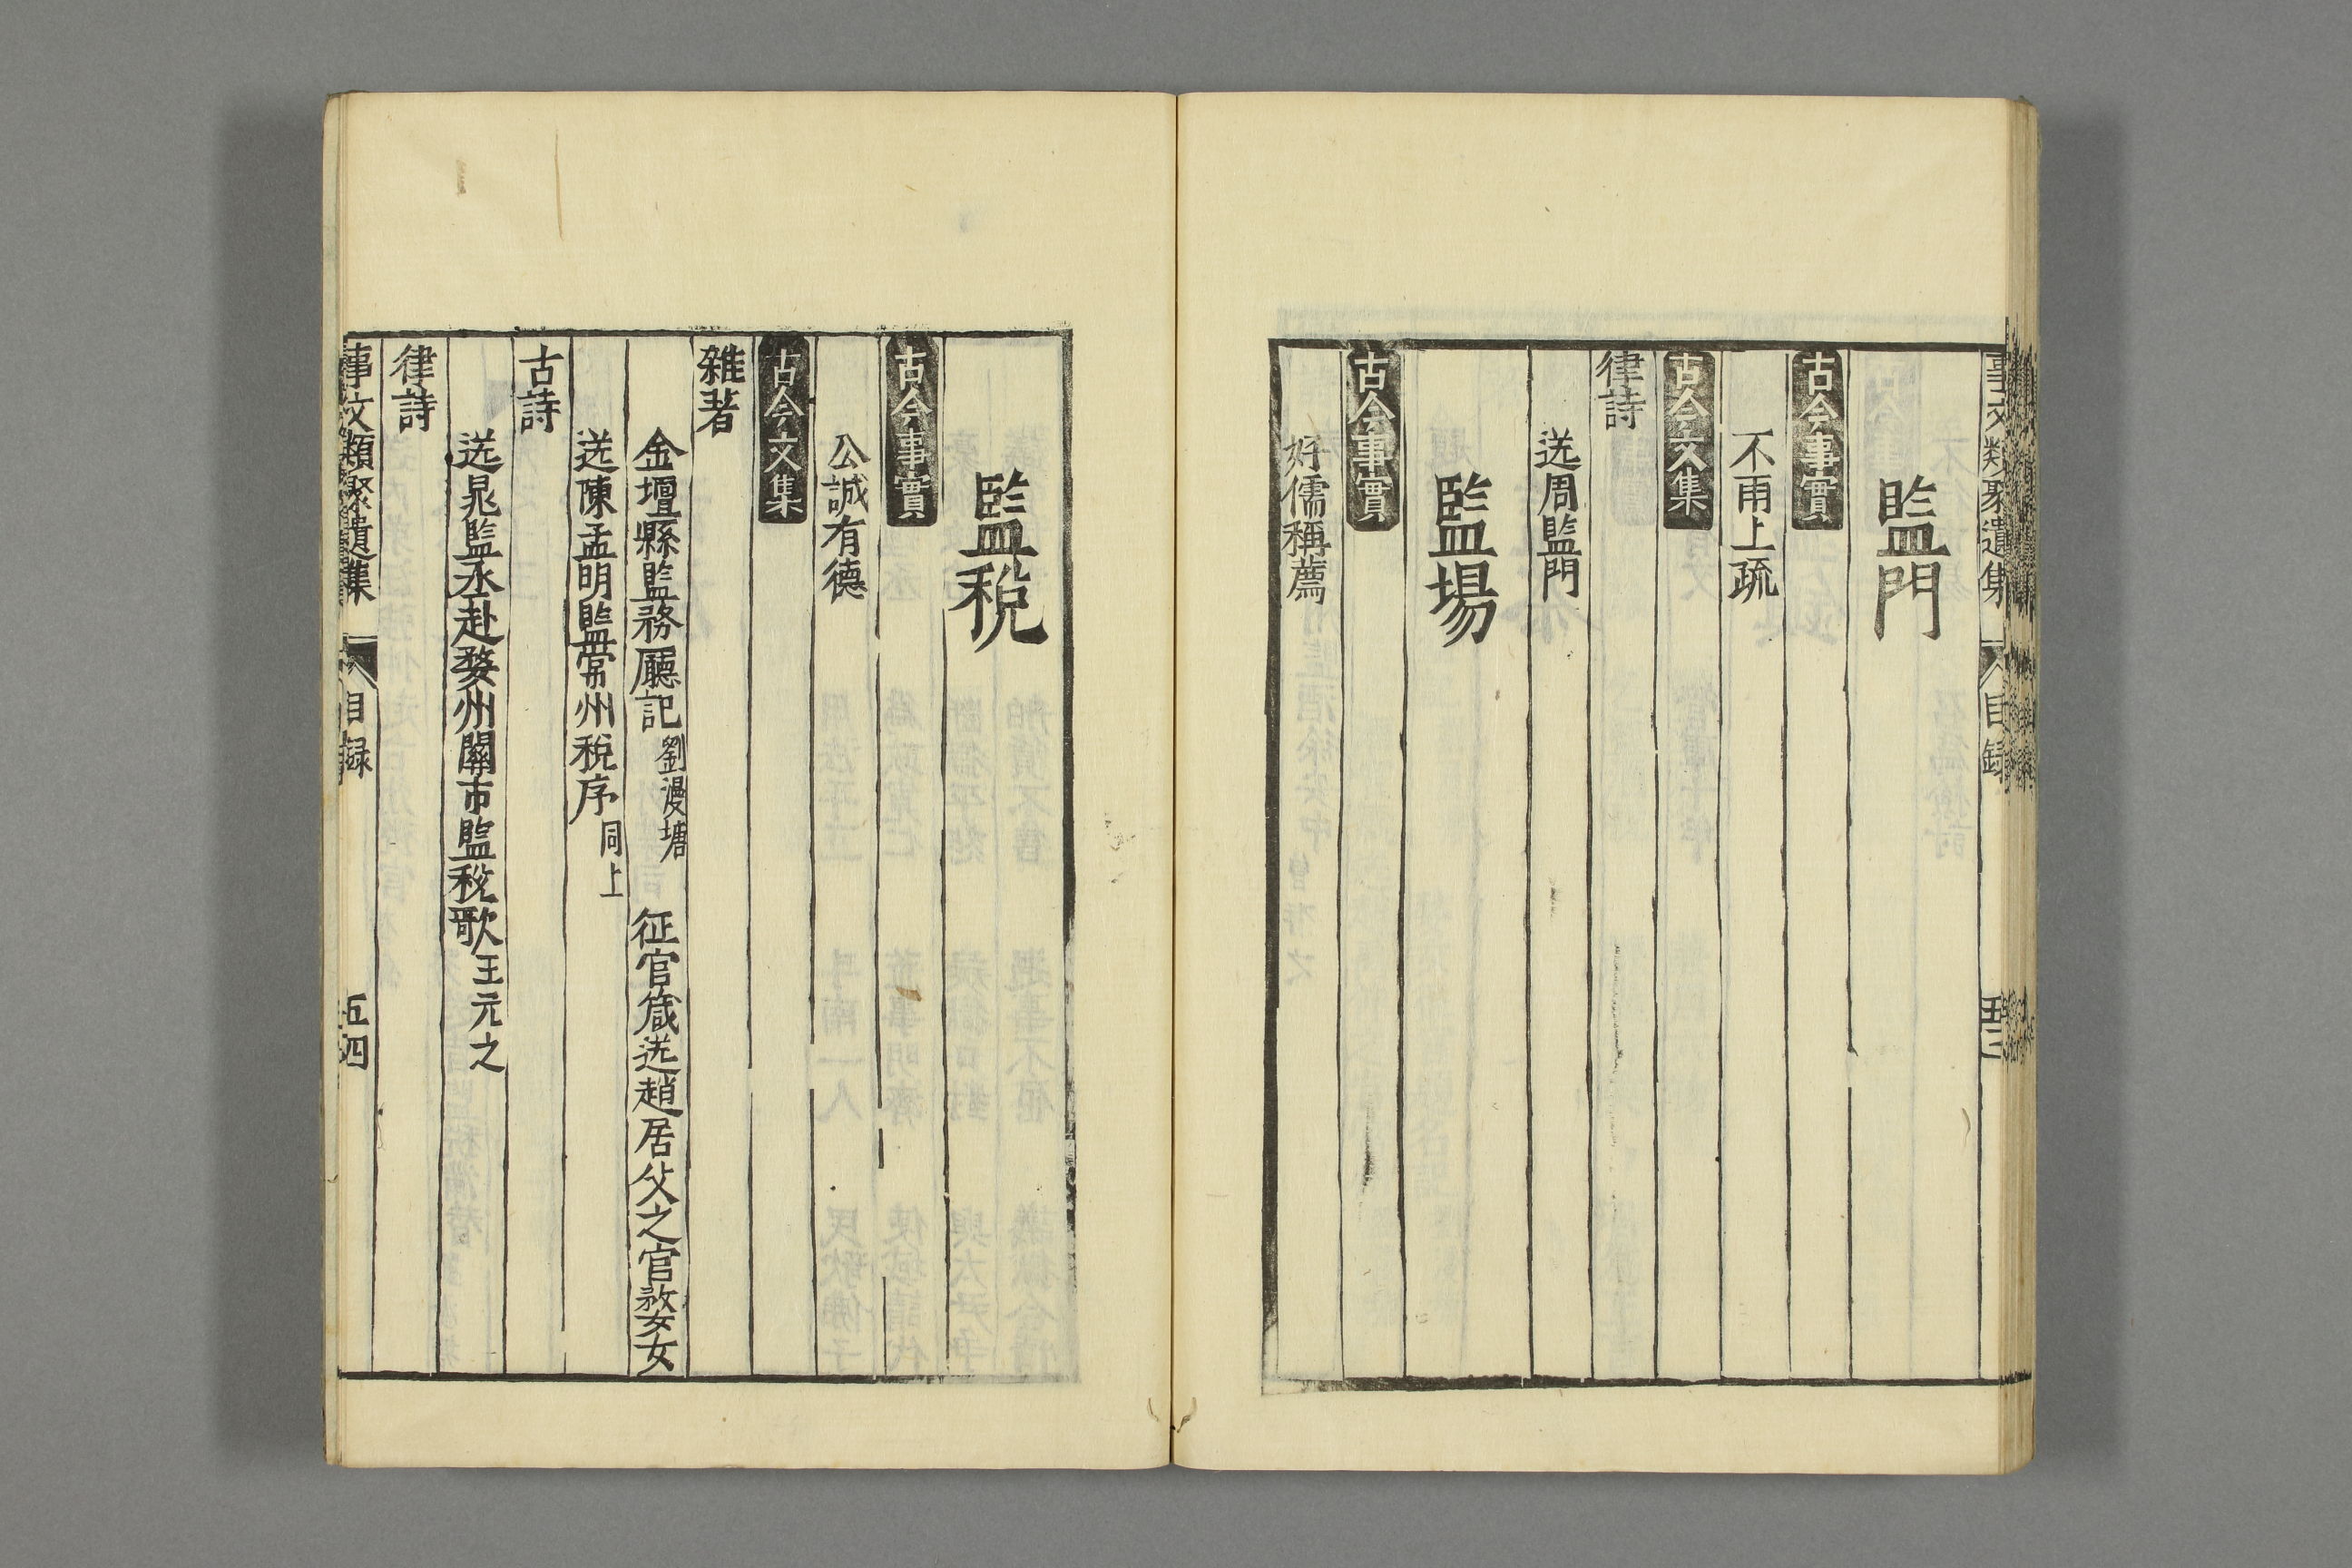 事文類聚遺集 目録
監門
古今事實
不雨上疏
古今文集
律詩
送周監門
監場
古今事實
好儒稱薦
監稅
古今事實
公誠有德
古今文集
雜著
金壇縣監務廳記 劉漫塘 征官箴送趙居父之官婺女
送陳孟明監常州稅序 同上
古詩
送晁監丞赴婺州關市監稅歌 王元之
律詩
事文類聚遺集 目録 五四